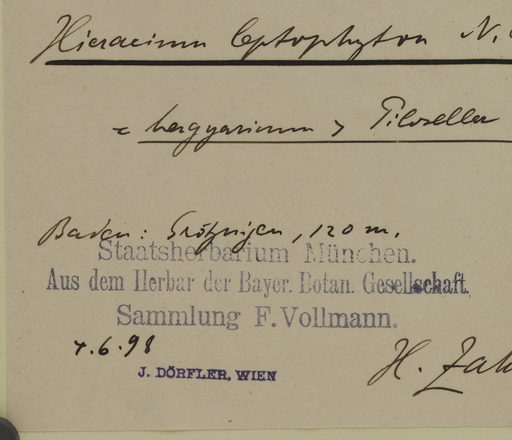 Hieracium leptophyton N.
= bauhinianum > Pilosella
Baden: Grötzingen, 120 m.
Staatsherbarium München.
Aus dem Herbar der Bayer. Botan. Gesellschaft.
Sammlung F. Vollmann.
4.6.98
J. DÖRFLER, WIEN
H. Zah